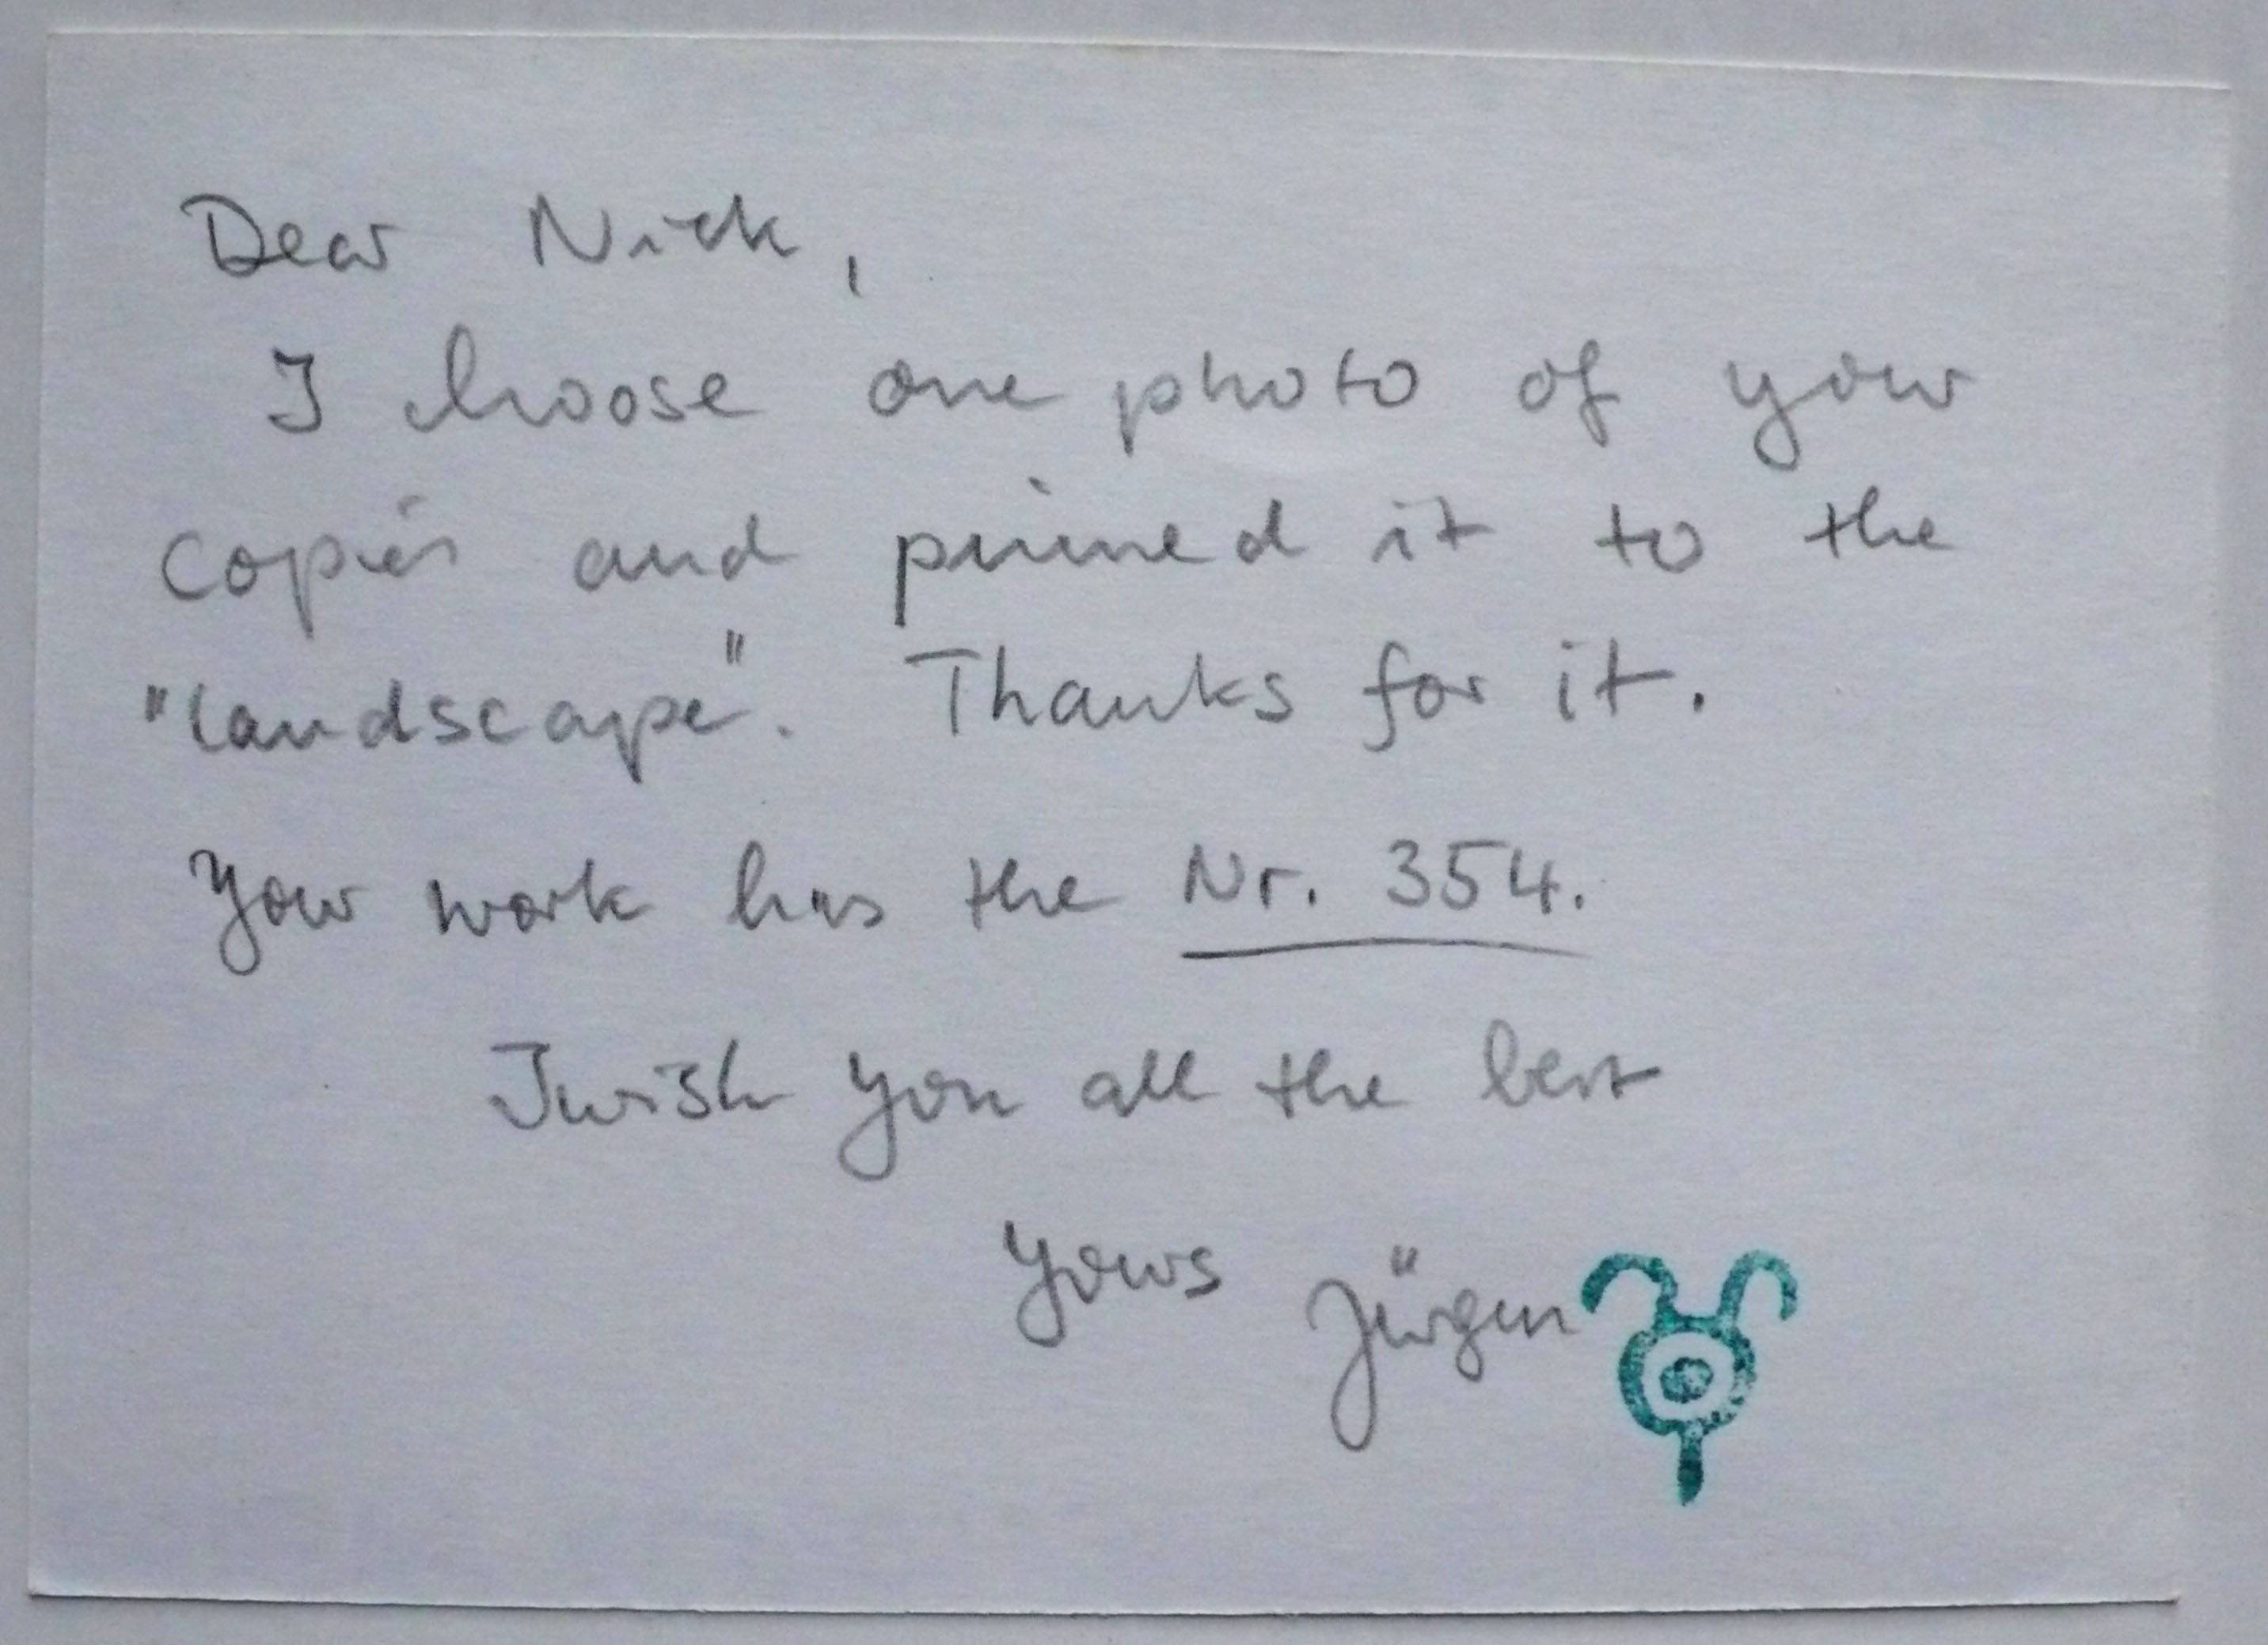 Dear Nick,
I choose one photo of your
copies and pinned it to the
"landscape". Thanks for it.
Your work has the Nr. 354.
I wish you all the best
Yours Jürgen